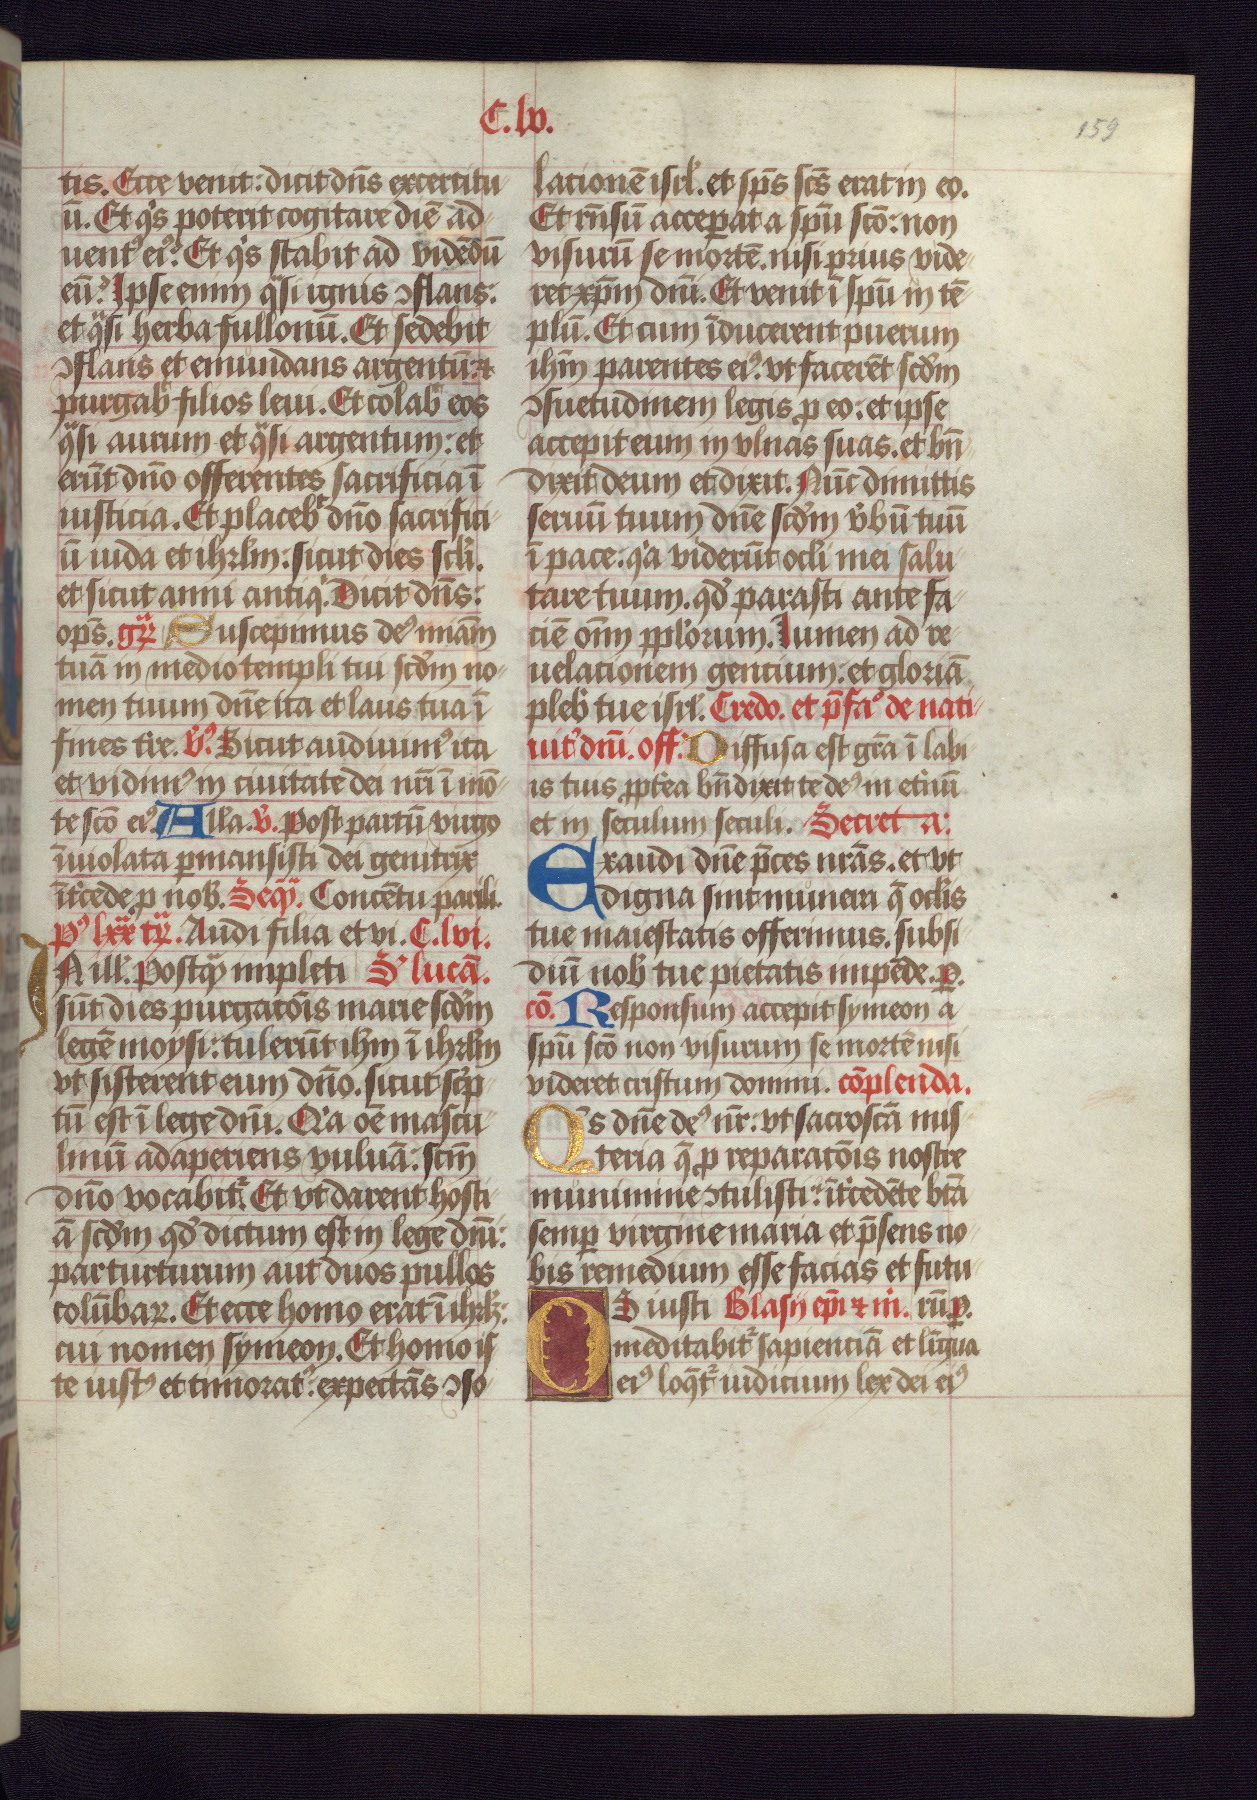 C.lv.
159
tis. Ecce venit: dicit dn̄s excertitu
ū. Et q's poterit cogitare diē ad
uentꝰ eiꝰ? Et q's stabit ad vidēdū
eū? Ipse enim qͣsi ignis ↄflans:
et qͣsi herba fullonū. Et sedebit
ↄflans et emundans argentū: ⁊
purgabͭ filios leui. Et colabͭ eos
qͣsi aurum et qͣsi argentum: et
erūt dn̄o offerentes sacrificia ī
iusticia. Et placebͭ dn̄o sacrifici
ū iuda et ihrl̄m: sicut dies scl̄i.
et sicut anni antiq'. Dicit dn̄s:
op̄s. Suscepimus deꝰ miām
tuā in medio templi tui scd̄m no
men tuum dn̄e ita et laus tua ī
fines tr̄e. v̄ꝰ. Sicut audiuimꝰ ita
et vidimꝰ in ciuitate dei nr̄i ī mō
te scō eiꝰ. All'a. v̄. Post partū virgo
īuiolata ꝑmansisti dei genitrix
īt'cede ꝓ nob'. Seqͥ. Concētu parili.
Audi filia et vi. C.lvi.
N ill'. Postqͣꝫ impleti S' lucā.
sūt dies purgatōis marie scd̄m
legē moysi: tulerūt ihm̄ ī ihrl̄m
vt sisterent eum dn̄o. sicut sc'p
tū est ī lege dn̄i. Q'a oē mascu
linū adaperiens vuluā: scm̄
dn̄o vocabitͬ. Et vt darent hosti
ā scd̄m qd' dictum est in lege dn̄i:
par turturum aut duos pullos
colūbaꝝ. Et ecce homo erat ī ihrl̄m:
cui nomen symeon. Et homo is
te iustꝰ et timoratꝰ: expectās ↄso
lationē isrl'. et sp̄s scs̄ erat in eo.
Et rn̄sū acceperat a spū scō: non
visurū se mortē. nisi prius vide
ret xp̄m dn̄i. Et venit ī spū in tē
plū. Et cum īducerent puerum
ihm̄ parentes eiꝰ. vt facerēt scd̄m
ↄsuetudinem legis ꝓ eo: et ipse
accepit eum in vlnas suas. et bn̄
dixit deum et dixit. Nūc dimittis
seruū tuum dn̄e scd̄m v'bū tuū
ī pace: q'a viderūt ocl'i mei salu
tare tuum. qd' parasti ante fa
ciē om̄ ppl'orum. Lumen ad re
uelationem gencium: et gloriā
pleb' tue isrl'. Credo. et p̄faꝰ de nati
uitͭ dn̄i. off: Diffusa est grā ī labi
is tuis ꝓpt'ea bn̄dixit te deꝰ in et'nū
et in seculum seculi. Secreta:
Exaudi dn̄e p̄ces nrās. et vt
digna sint munera q̄ ocl'is
tue maiestatis offerimus. subsi
diū nob' tue pietatis impēde. ꝑ.
cō. Responsum accepit symeon a
spū scō non visurum se mortē nisi
videret cristum domini. cōplenda.
Q's dn̄e deꝰ nr̄: vt sacroscā mis
teria q̄ ꝓ reparatōis nostre
munimine ↄtulisti: īt'cedēte btā
semꝑ virgine maria et p̄sens no
bis remedium esse facias et futu
OS iusti Blasij ep̄i ⁊ m̄. rū ꝑ.
meditabitͬ sapienciā et lingua
eiꝰ loq̄tͬ iudicium lex dei eiꝰ